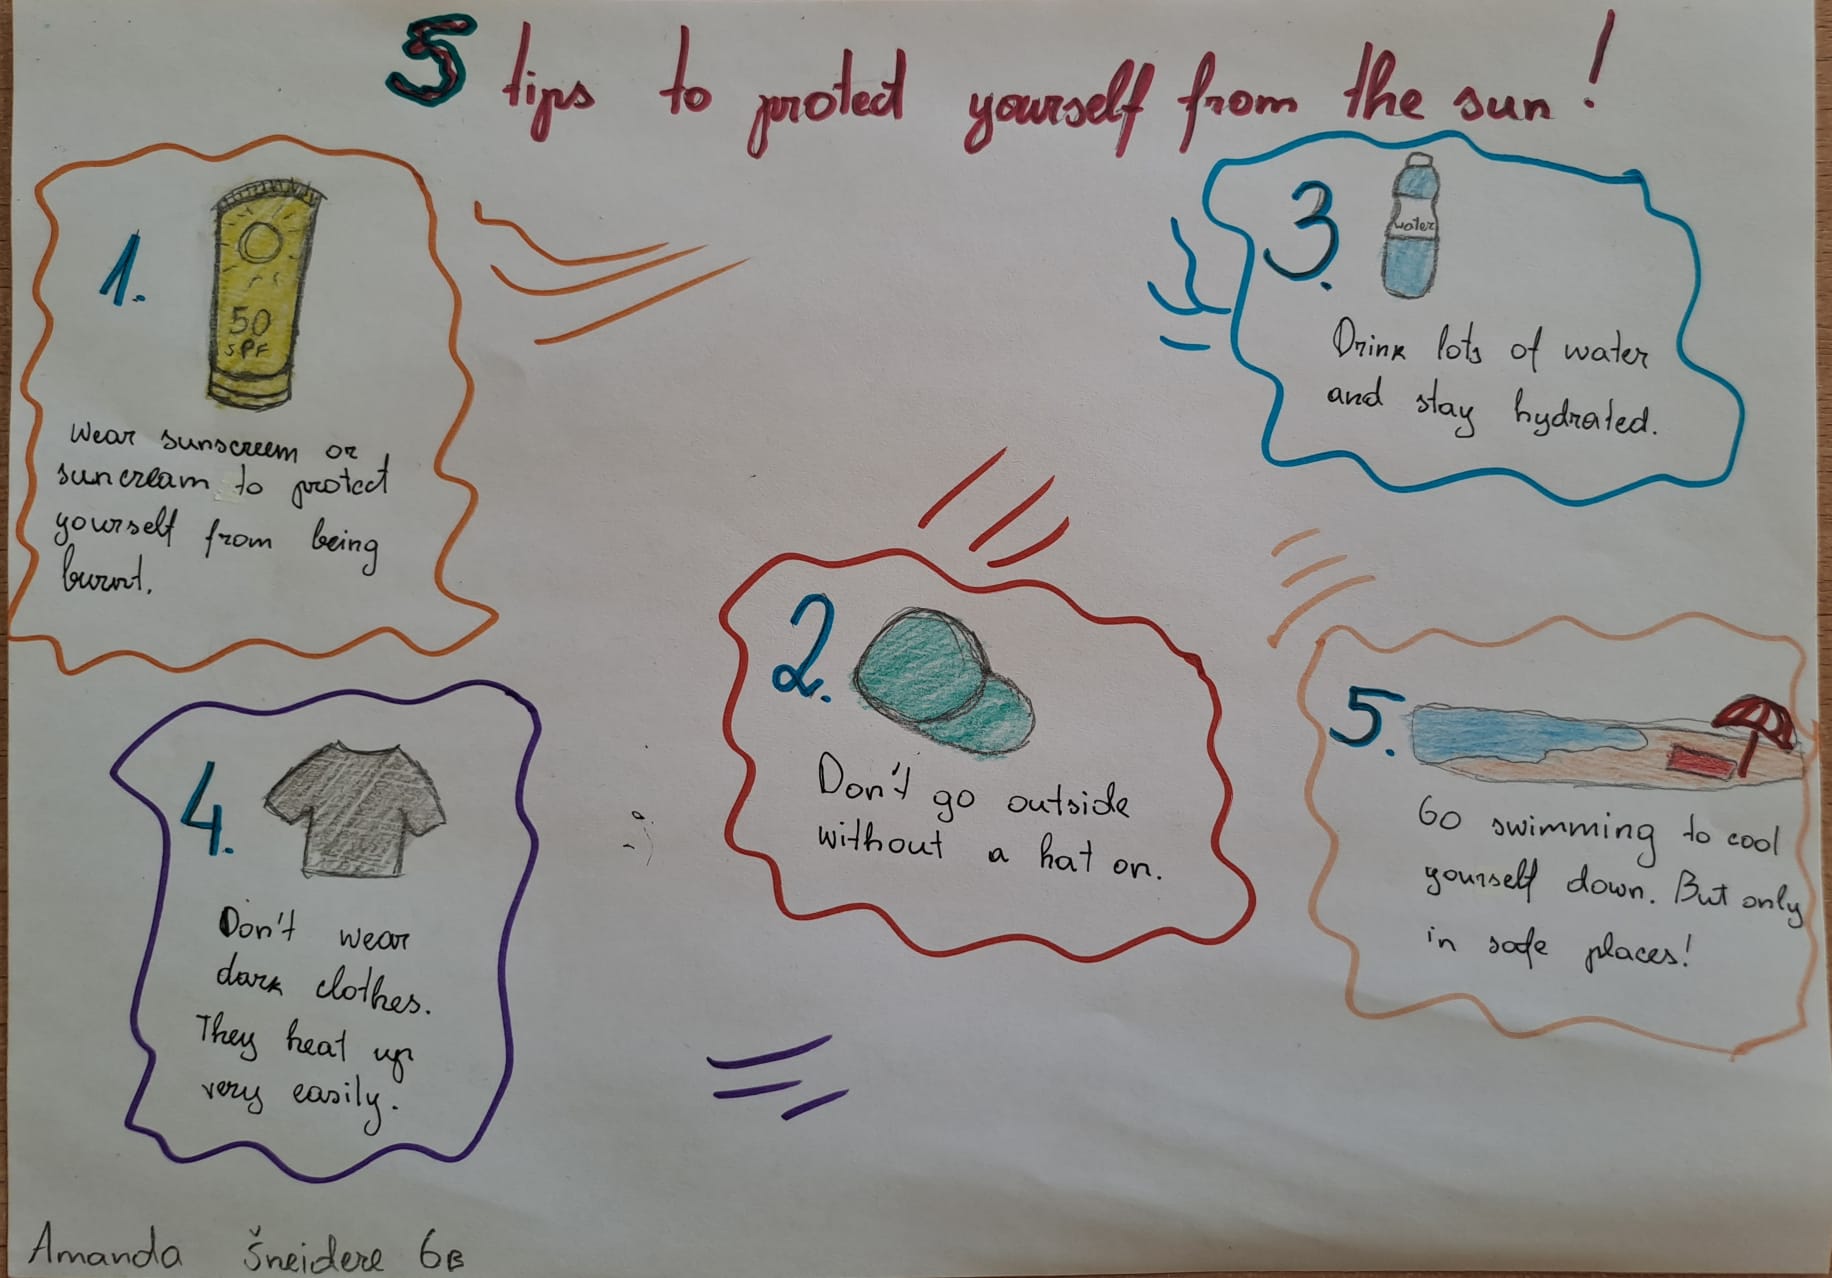 5 tips to protect yourself from the sun!
1.
50
SPF
Wear sunscreem or
suncream to protect
yourself from being
burnt.
2.
Don't go outside
without a hat on.
3.
water
Drink lots of water
and stay hydrated.
4.
Don't wear
dark clothes.
They heat up
very easily.
5.
Go swimming to cool
yourself down. But only
in safe places!
Amanda Šneidere 6B